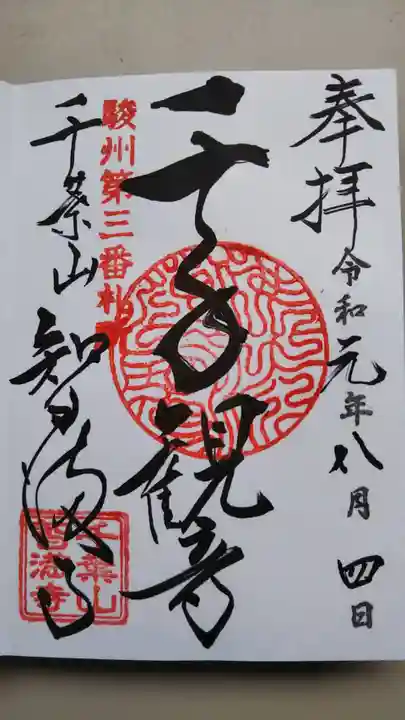 奉拝 令和元年八月四日
千手観音
駿州第三番札所
千葉山 智満寺
千葉山
智満寺